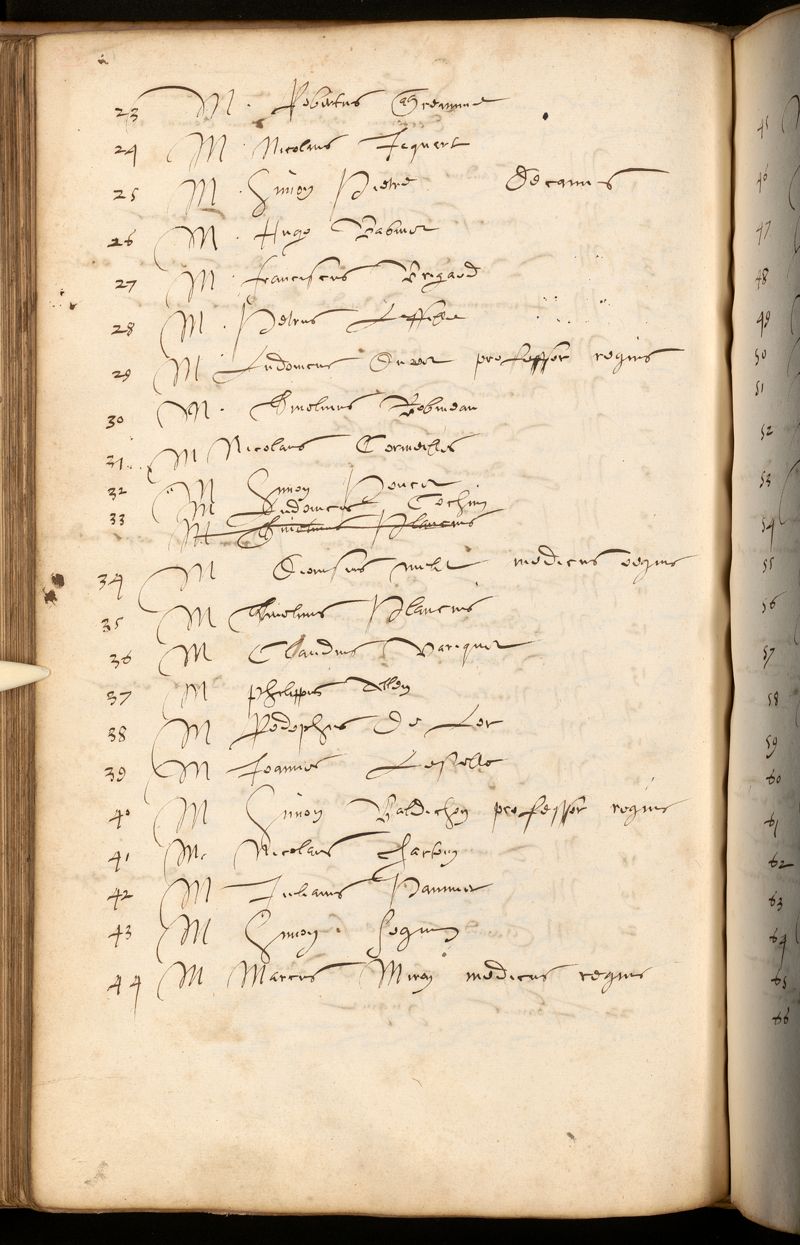 23 M. Robertus Greaume
24 M. Nicolaus Jequert
25 M. Simon Pietre Decanus
26 M. Hugo Babinet
27 M. Franciscus Brigard
28 M. Petrus Laffilé
29 M Ludovicus Duret professor regius
30 M. Guielmus Robineau
31 M Nicolaus Cormeilles
32 M Simon
33 M Ludovicus Cochin
M Guielmus Plancius
34 M Dionisius medicus regius
35 M Guielmus Plancius
36 M Claudius Variquet
37 M Philippus Allen
38 M Rodophus De Lor
39 M Joannes Lespelle
40 M Simon Baldichon professor regius
41 M. Nicolaus
42 M Julianus Paumier
43 M Simon Seguin
44 M Marcus Miron medicus regius
45
46
47
48
49
50
51
52
53
54
55
56
57
58
59
60
61
62
63
64
65
66